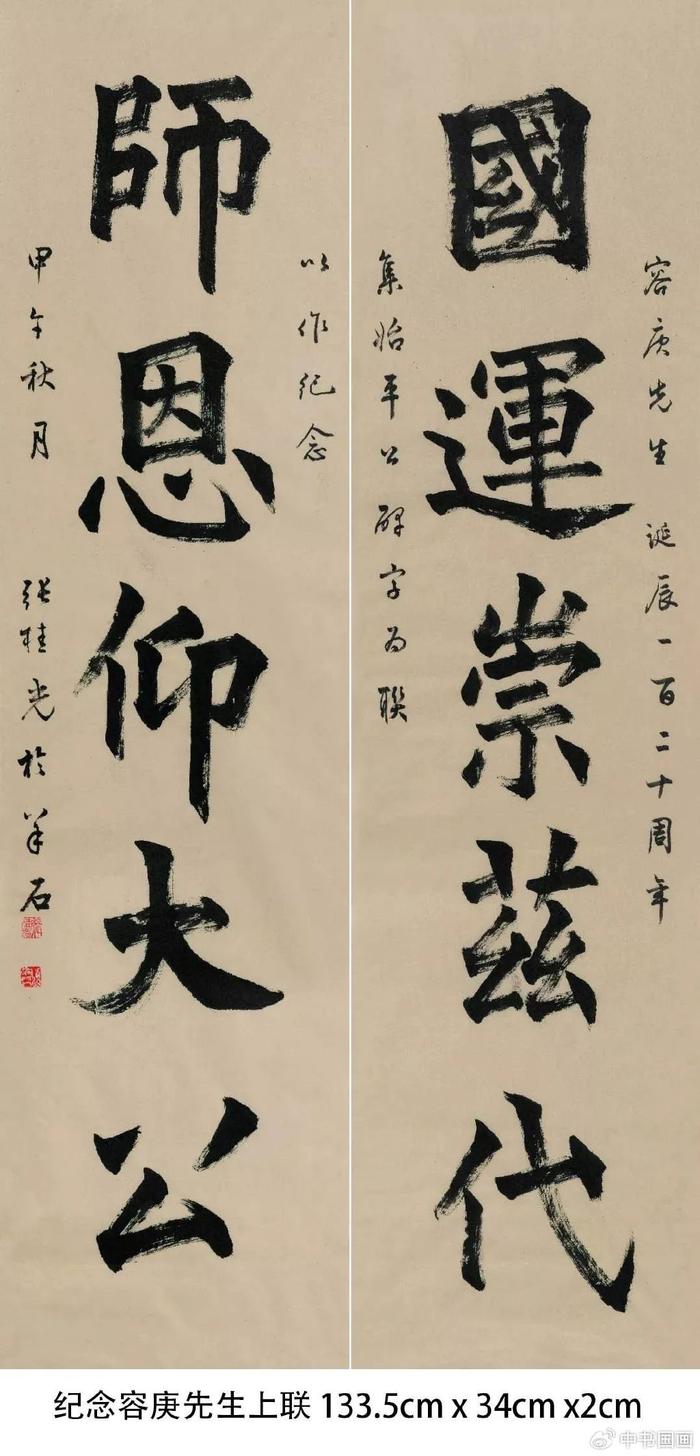 容庚先生 诞辰一百二十周年
國運崇茲代
集始平公碑字为联
以作纪念
師恩仰大公
甲午秋月 张桂光於羊石
纪念容庚先生上联 133.5cm x 34cm x2cm
@中书国画